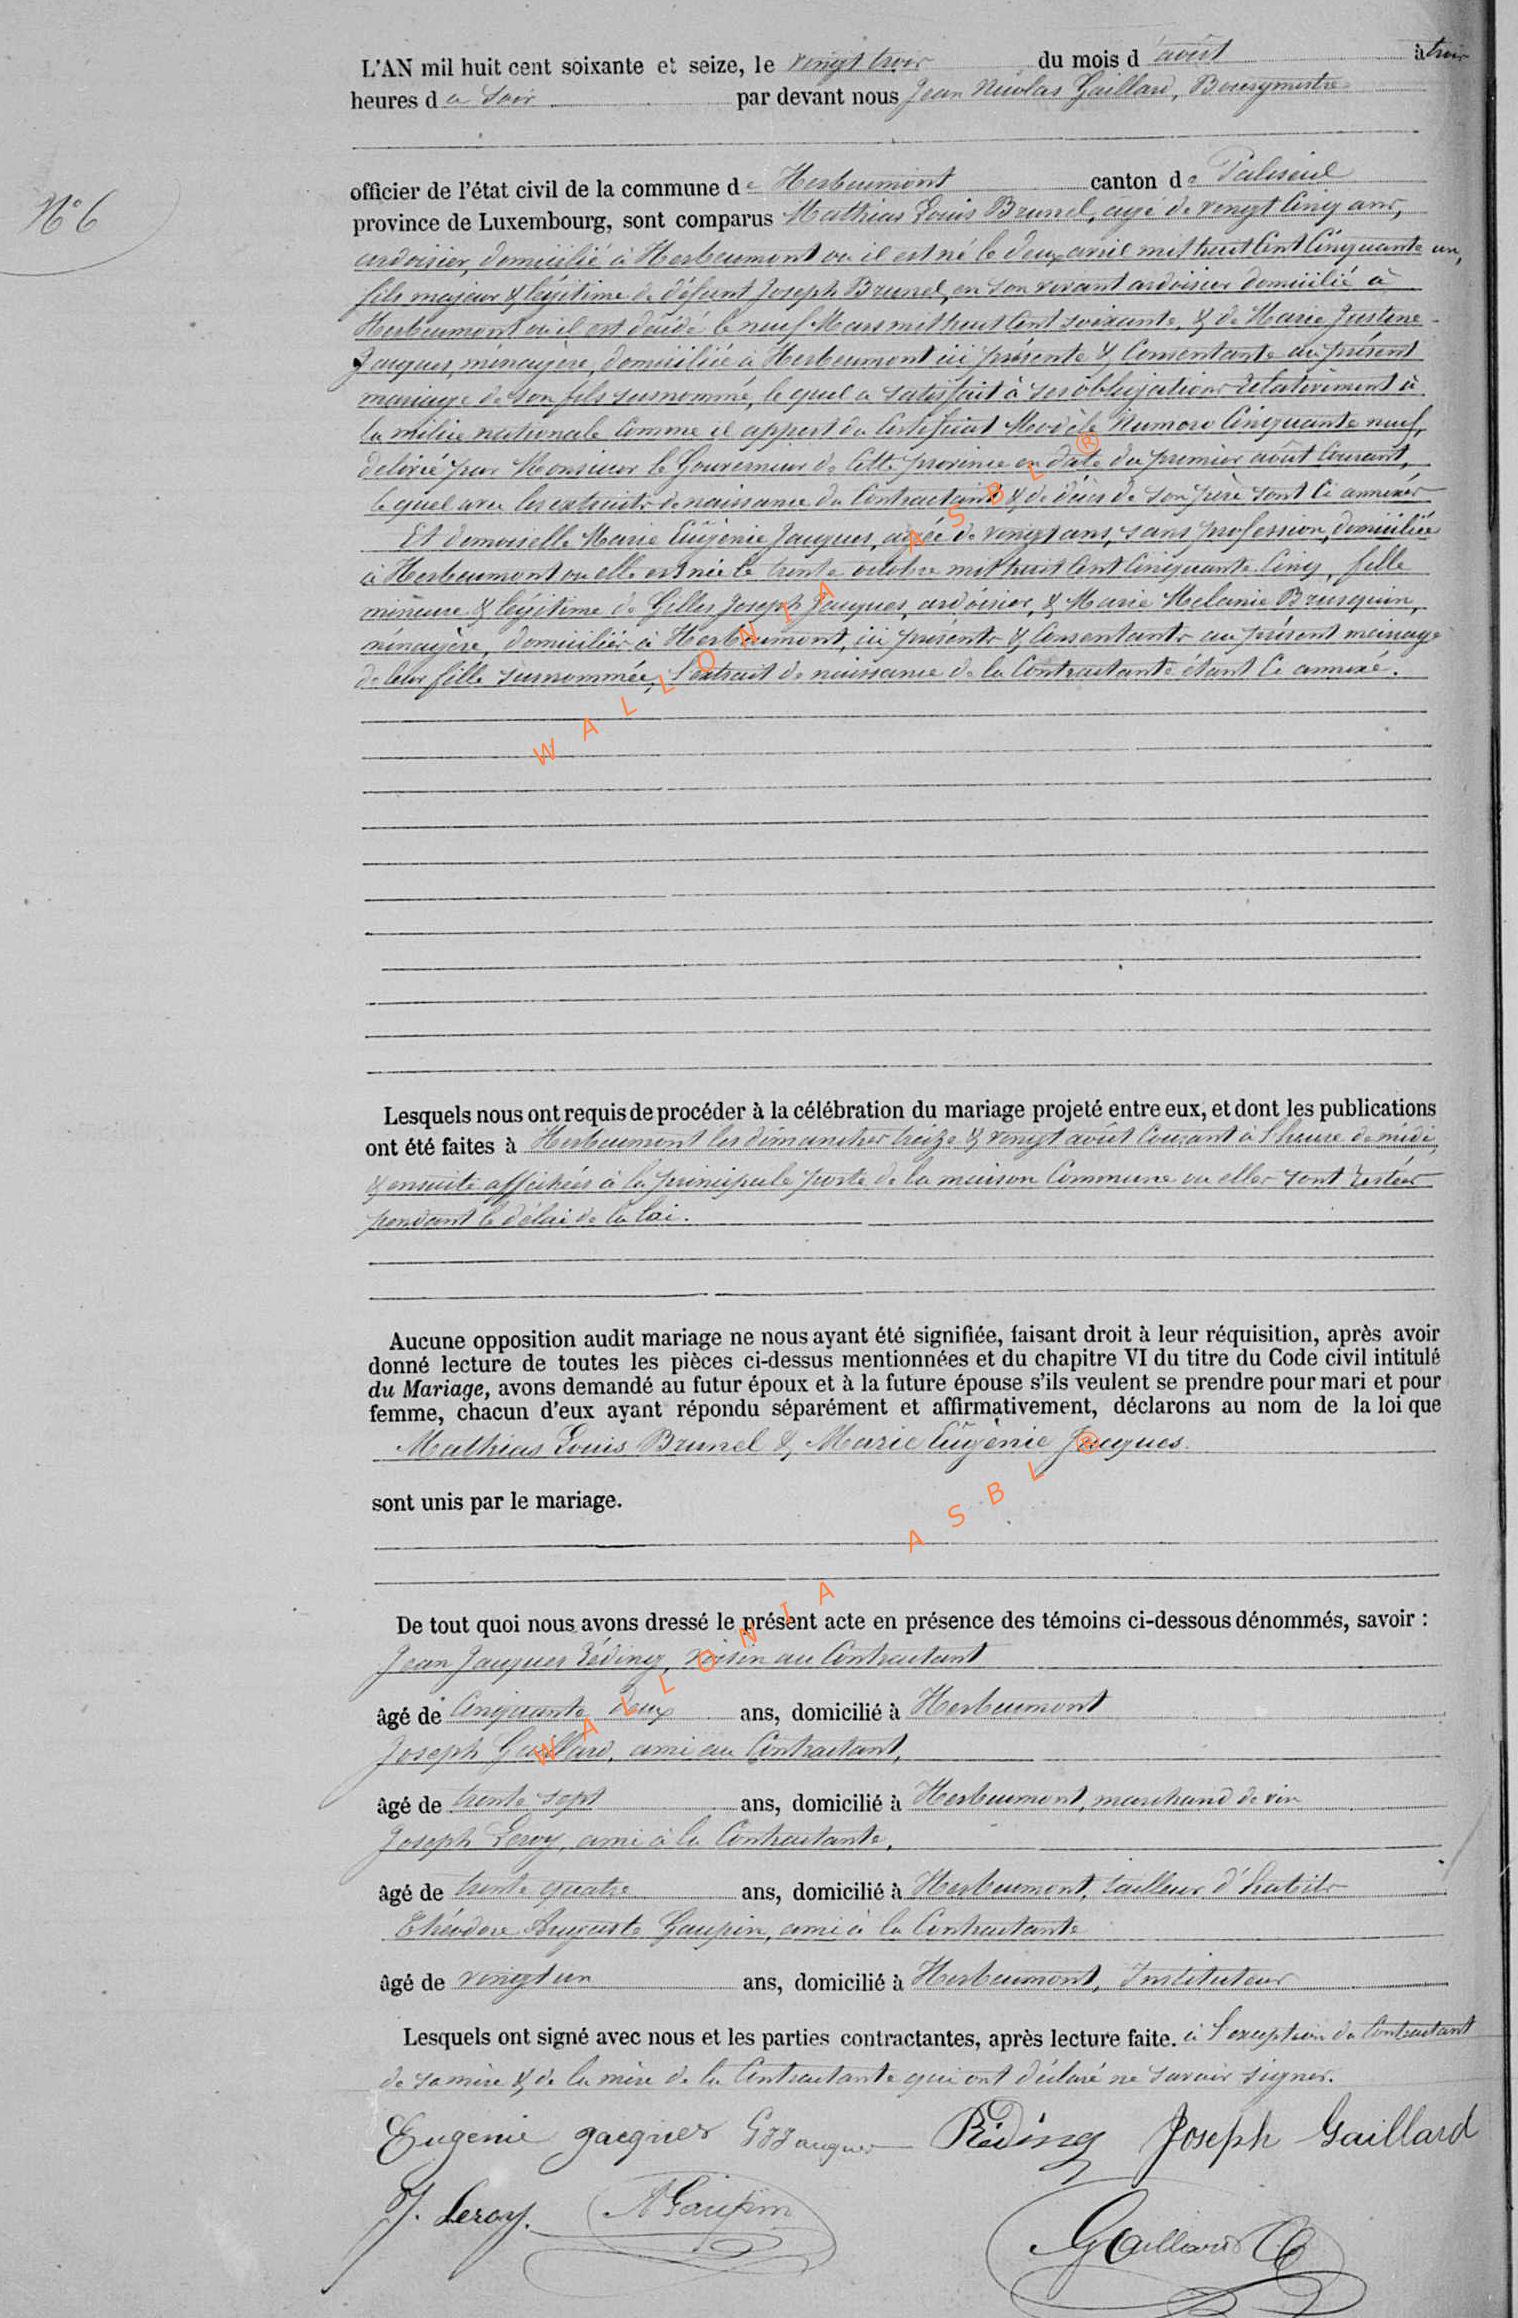 L'AN mil huit cent soixante et seize, le vingt trois du mois d'août à trois
heures du soir par devant nous Jean Nicolas Gaillard, Bourgmestre
N° 6
officier de l'état civil de la commune de Herbeumont canton de Paliseul
province de Luxembourg, sont comparus Mathias Louis Brunel, agé de vingt cinq ans,
ardoisier, domicilié à Herbeumont ou il est né le deux avril mil huit cent cinquante un,
fils majeur & légitime de défunt Joseph Brunel, en son vivant ardoisier domicilié à
Herbeumont ou il est décidé le neuf Mars mil huit cent soixante, & de Marie Justine
Jacques, ménagère, domiciliée à Herbeumont ici présente & consentante au présent
mariage de son fils susnommé, le quel a satisfait à ses obligations relativement à
la milice nationale comme il appert du certificat Modèle Numero cinquante neuf,
delivré par Monsieur le Gouverneur de cette province en date du premier août courant,
le quel avec les extraits de naissance du contractant & de décès de son père sont ci annexés
Et demoiselle Marie Eugènie Jacques, agée de vingt ans, sans profession, domiciliée
à Herbeumont ou elle est née le trente octobre mil huit cent cinquante cinq, fille
mineure & légitime de Gilles Joseph Jacques, ardoisier, & Marie Melanie Brusquin,
ménagère, domiciliés à Herbeumont, ici présents & consentants au présent mariage
de leur fille surnommée, l'extrait de naissance de la contractante étant ci annexé.
WALLONIA ASBL ®
Lesquels nous ont requis de procéder à la célébration du mariage projeté entre eux, et dont les publications
ont été faites à Herbeumont les dimanches treize & vingt août courant à l'heure de midi
& ensuite affichées à la principale porte de la maison commune ou elles sont restées
pendant le délai de la loi.
Aucune opposition audit mariage ne nous ayant été signifiée, faisant droit à leur réquisition, après avoir
donné lecture de toutes les pièces ci-dessus mentionnées et du chapitre VI du titre du Code civil intitulé
du Mariage, avons demandé au futur époux et à la future épouse s'ils veulent se prendre pour mari et pour
femme, chacun d'eux ayant répondu séparément et affirmativement, déclarons au nom de la loi que
Mathias Louis Brunel & Marie Eugènie Jacques
sont unis par le mariage.
WALLONIA ASBL ®
De tout quoi nous avons dressé le présent acte en présence des témoins ci-dessous dénommés, savoir :
Jean Jacques Réding, voisin au contractant
âgé de cinquante deux ans, domicilié à Herbeumont
Joseph Gaillard, ami au contractant,
âgé de trente sept ans, domicilié à Herbeumont, marchand de vin
Joseph Leroy, ami à la contractante,
âgé de trente quatre ans, domicilié à Herbeumont, tailleur d'habits
Théodore Auguste Gaupin, ami à la contractante
âgé de vingt un ans, domicilié à Herbeumont, Instituteur
Lesquels ont signé avec nous et les parties contractantes, après lecture faite. à l'exception du contractant
de sa mère & de la mère de la contractante qui ont déclaré ne savoir signer.
Eugenie jacques GJJacques Réding Joseph Gaillard
J. Leroy. AGaupin Gaillard